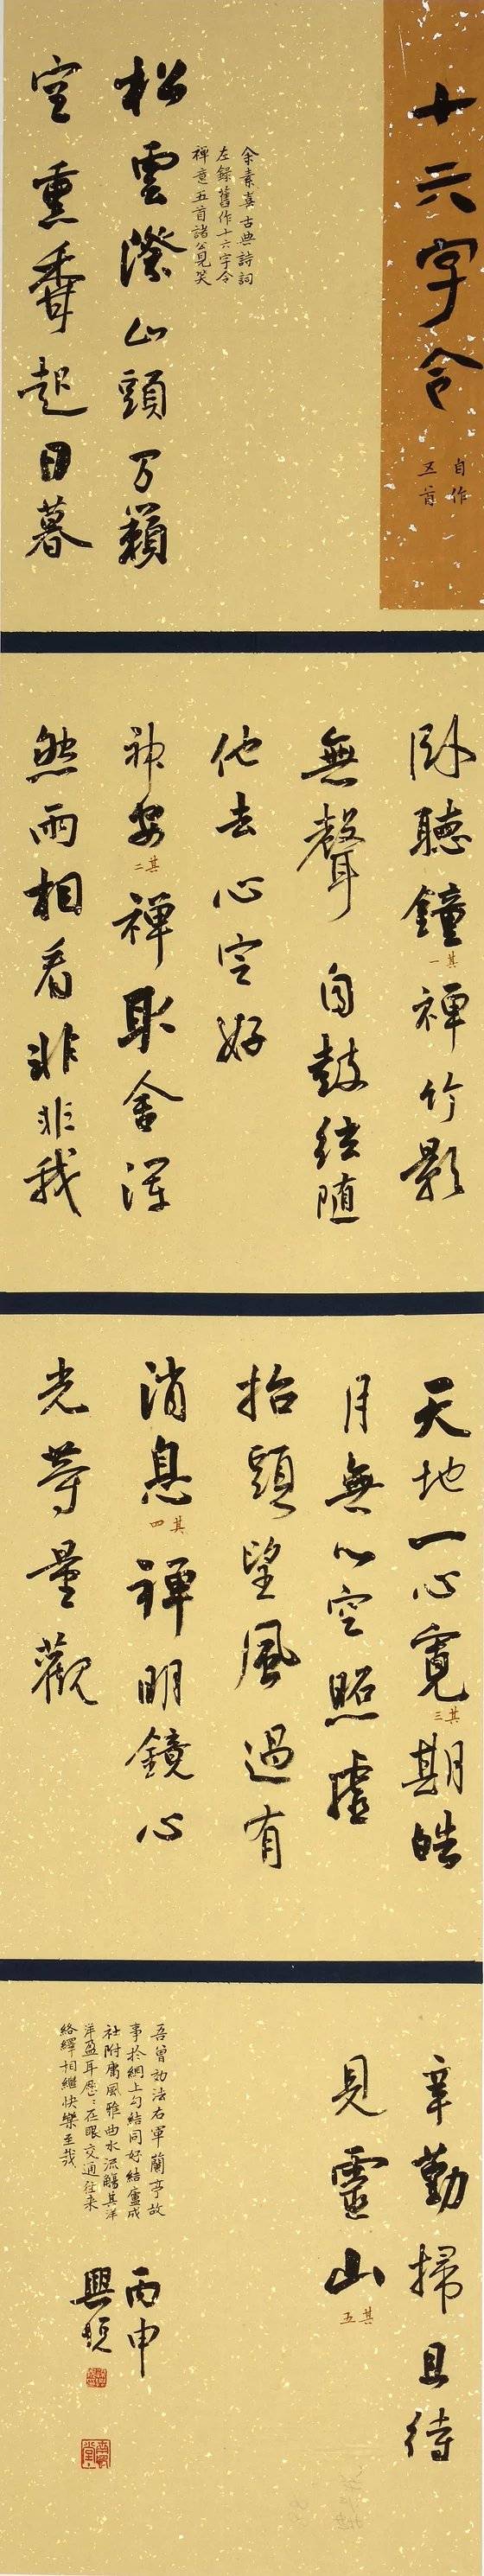 十六字令
自作
五首
余素喜古典詩詞
左錄舊作十六字令
禪意五首諸公見笑
松雲際山頭万籟
空熏香起日暮
卧聽鐘其一禪竹影
無聲自鼓弦随
他去心空好
神安其二禪取舍渾
然兩相看非非我
天地一心寬其三期皓
月無心空照據
抬頭望風過有
消息其四禪明鏡心
光等量觀
辛勤掃且待
見靈山其五
吾曾効法右軍蘭亭故
事於網上勾結同好結廬成
社附庸風雅曲水流觴其洋
洋盈耳歷歷在眼交通往来
絡繹相繼快樂至哉
丙申
興